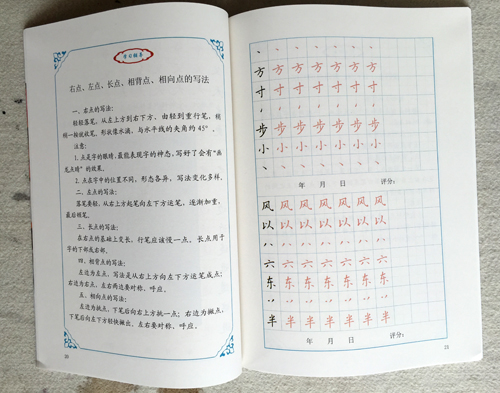 学习秘季
右点、左点、长点、相背点、相向点的写法
一、右点的写法:
轻轻落笔，从左上方到右下方，由轻到重行笔，稍
稍一顿就收笔，形状像水滴，与水平线的夹角约45°。
注意:
1.点是字的眼睛，最能表现字的神态，写好了会有“画
龙点睛”的效果。
2.点在字中的位置不同，形态各异，写法变化多样。
二、左点的写法:
落笔要轻，从右上方起笔向左下方运笔，逐渐加重，
最后顿笔。
三、长点的写法:
在右点的基础上变长，行笔应该慢一点。长点用于
字的下部或右部。
四、相背点的写法:
左边为左点，写法是从右上方向左下方运笔成点；
右边为右点。左右两边要对称、呼应。
五、相向点的写法:
左边为挑点，下笔后向右上方挑一点；右边为撇点，
下笔后向左下方轻快撇出。左右要对称、呼应。
20
丶 丶 丶 丶 丶 丶 丶
方 方 方 方 方 方 方
寸 寸 寸 寸 寸 寸 寸
步 步 步 步 步 步 步
小 小 小 小 小 小 小
年 月 日 评分:
风 风 风 风 风 风 风
以 以 以 以 以 以 以
六 六 六 六 六 六 六
东 东 东 东 东 东 东
半 半 半 半 半 半 半
年 月 日 评分: